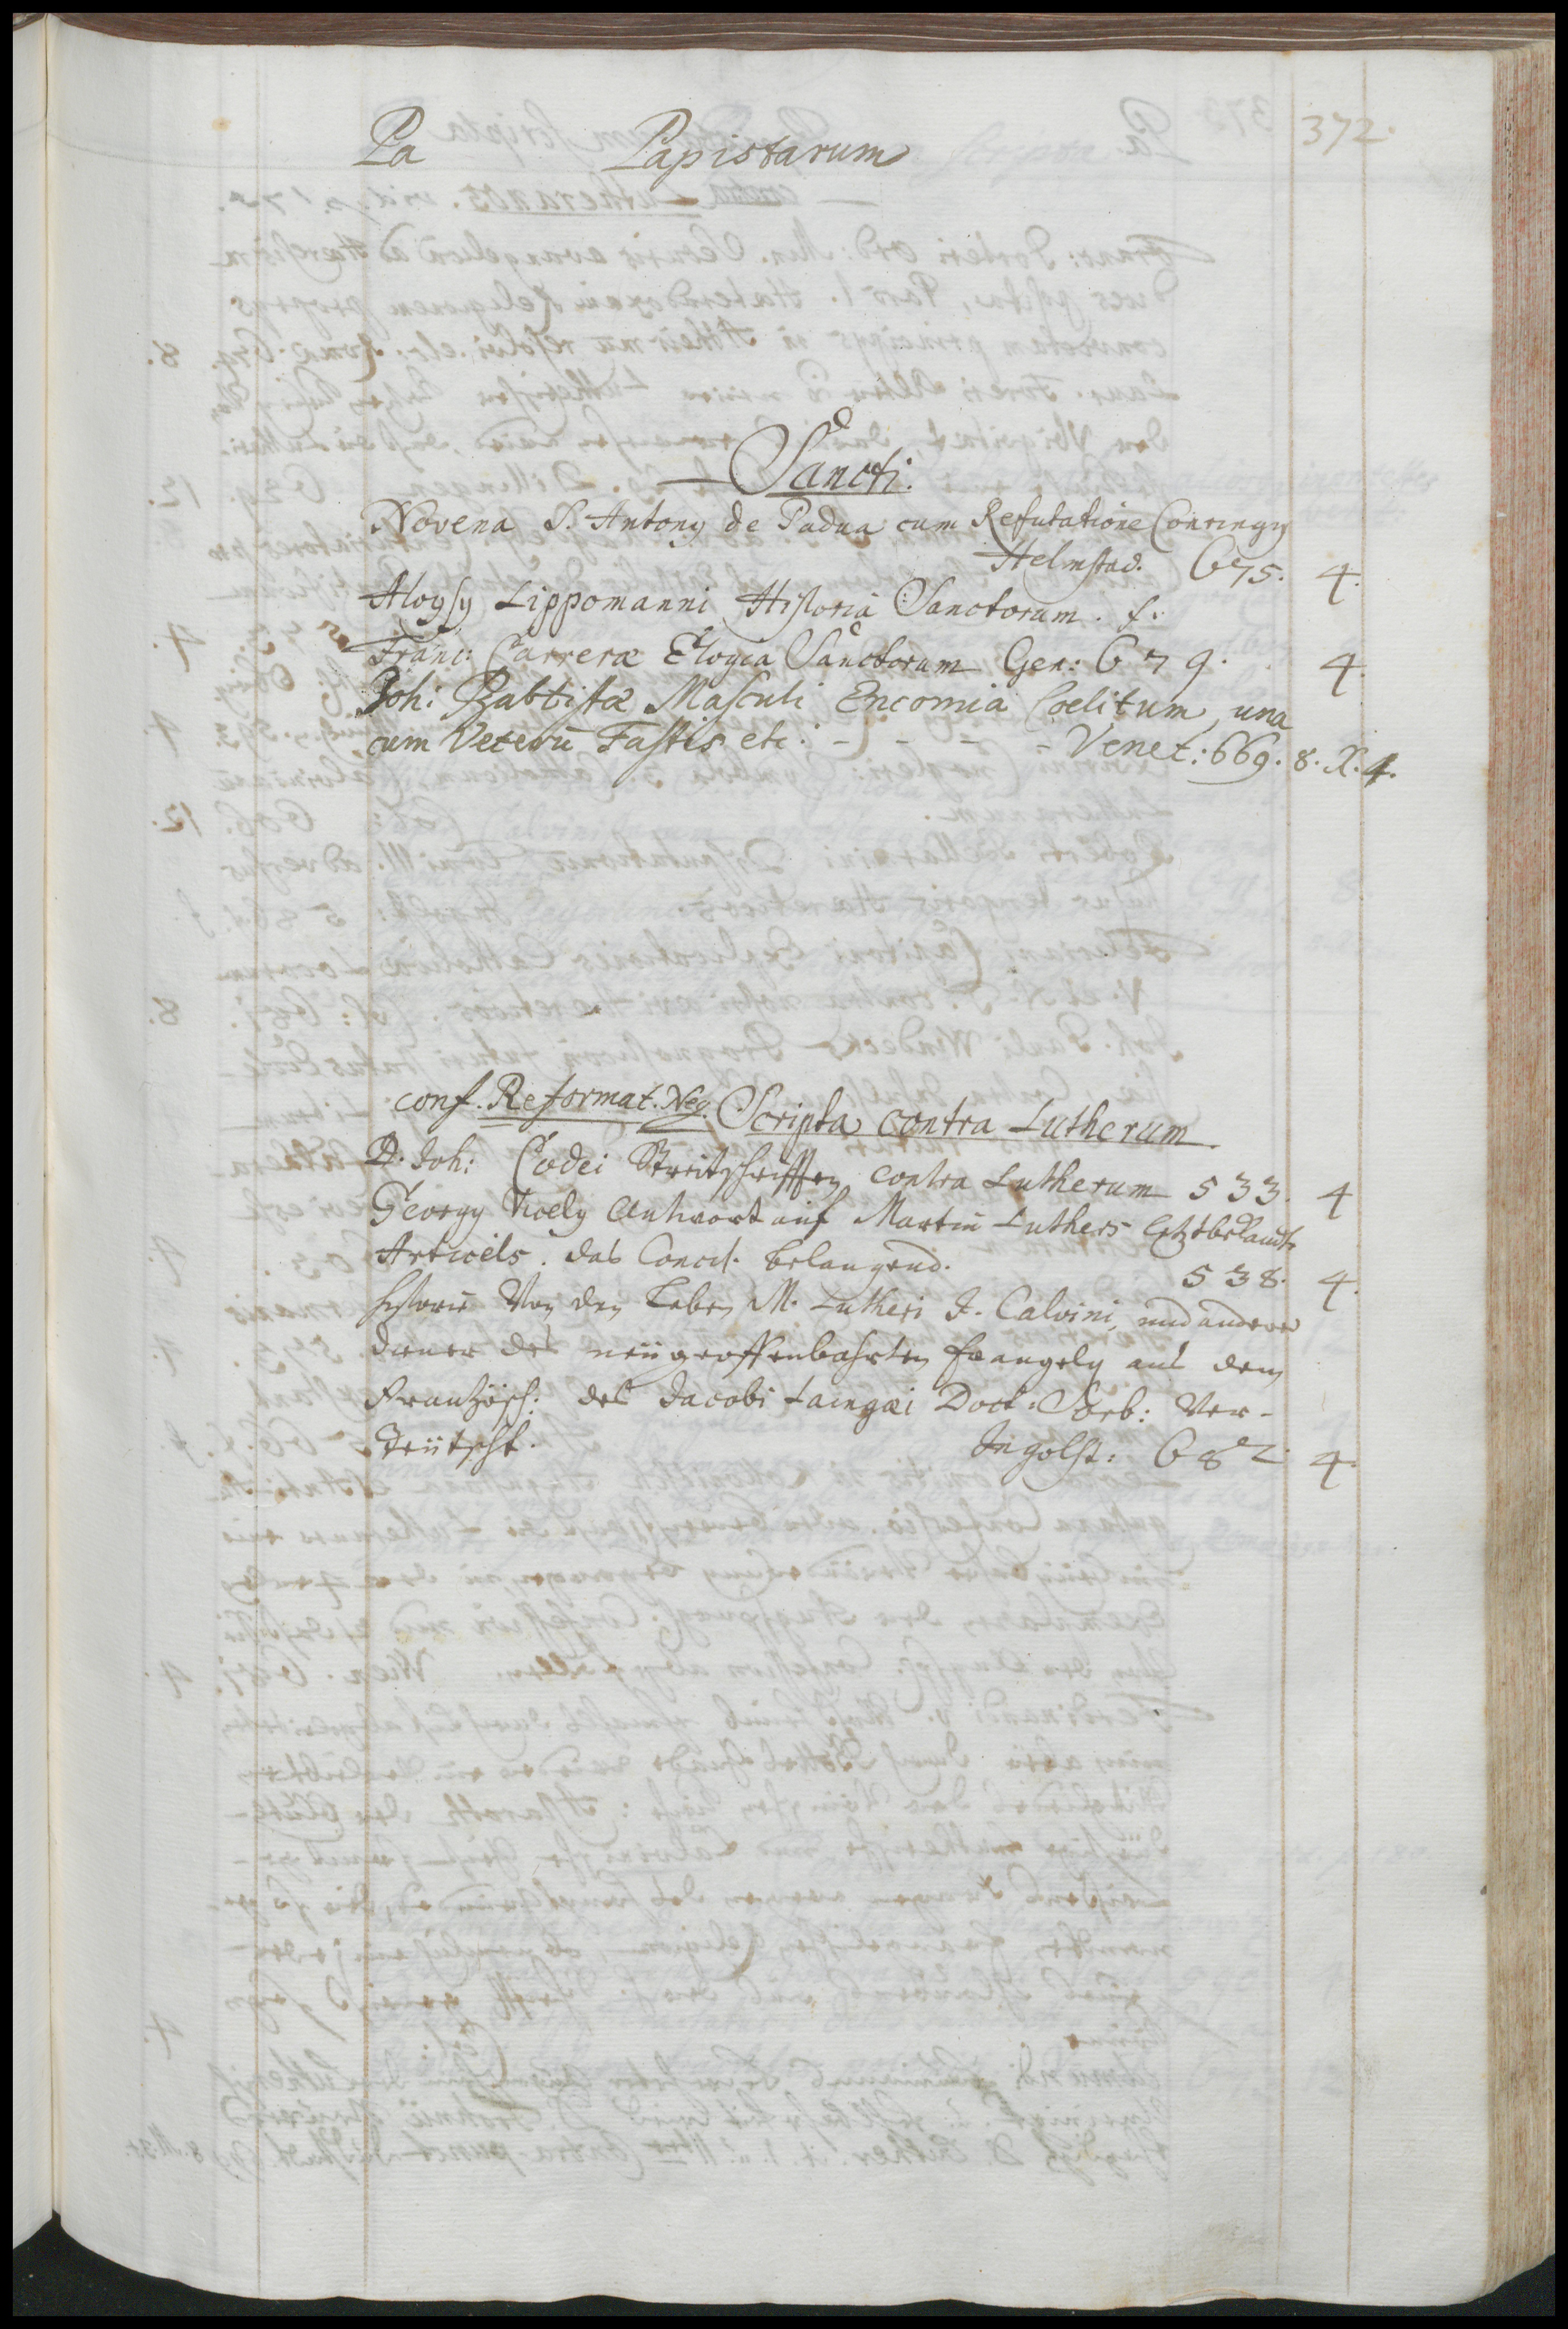 Pa Papistarum 372.
Sancti.
Novena S. Antony de Padua cum Refutatione Conringy
Helmstad. 675. 4.
Aloysy Lippomanni Historia Sanctorum. f.
Franc: Carreræ Elogia Sanctorum Gen: 679. 4.
Joh: Babtistæ Masculi Encomia Coelitum, una
cum Veterū Fastis etc: - - - - Venet: 669. 8. X. 4.
conf. Reformat. Neg. Scripta contra Lutherum.
D. Joh: Codei Streitschrifften contra Lutherum 533. 4
Georgy Vicely Antwort auf Martin Luthers letztbekandte
Articels. das Concil. belangend. 538. 4.
Historie Von den Leben M. Lutheri J. Calvini, und anderer
diener des neügeoffenbahrten Evangely aus dem
Frantzösch: des Jacobi Laingæi Doct. Sorb: Ver-
Teütscht. Ingolst: 682 4.